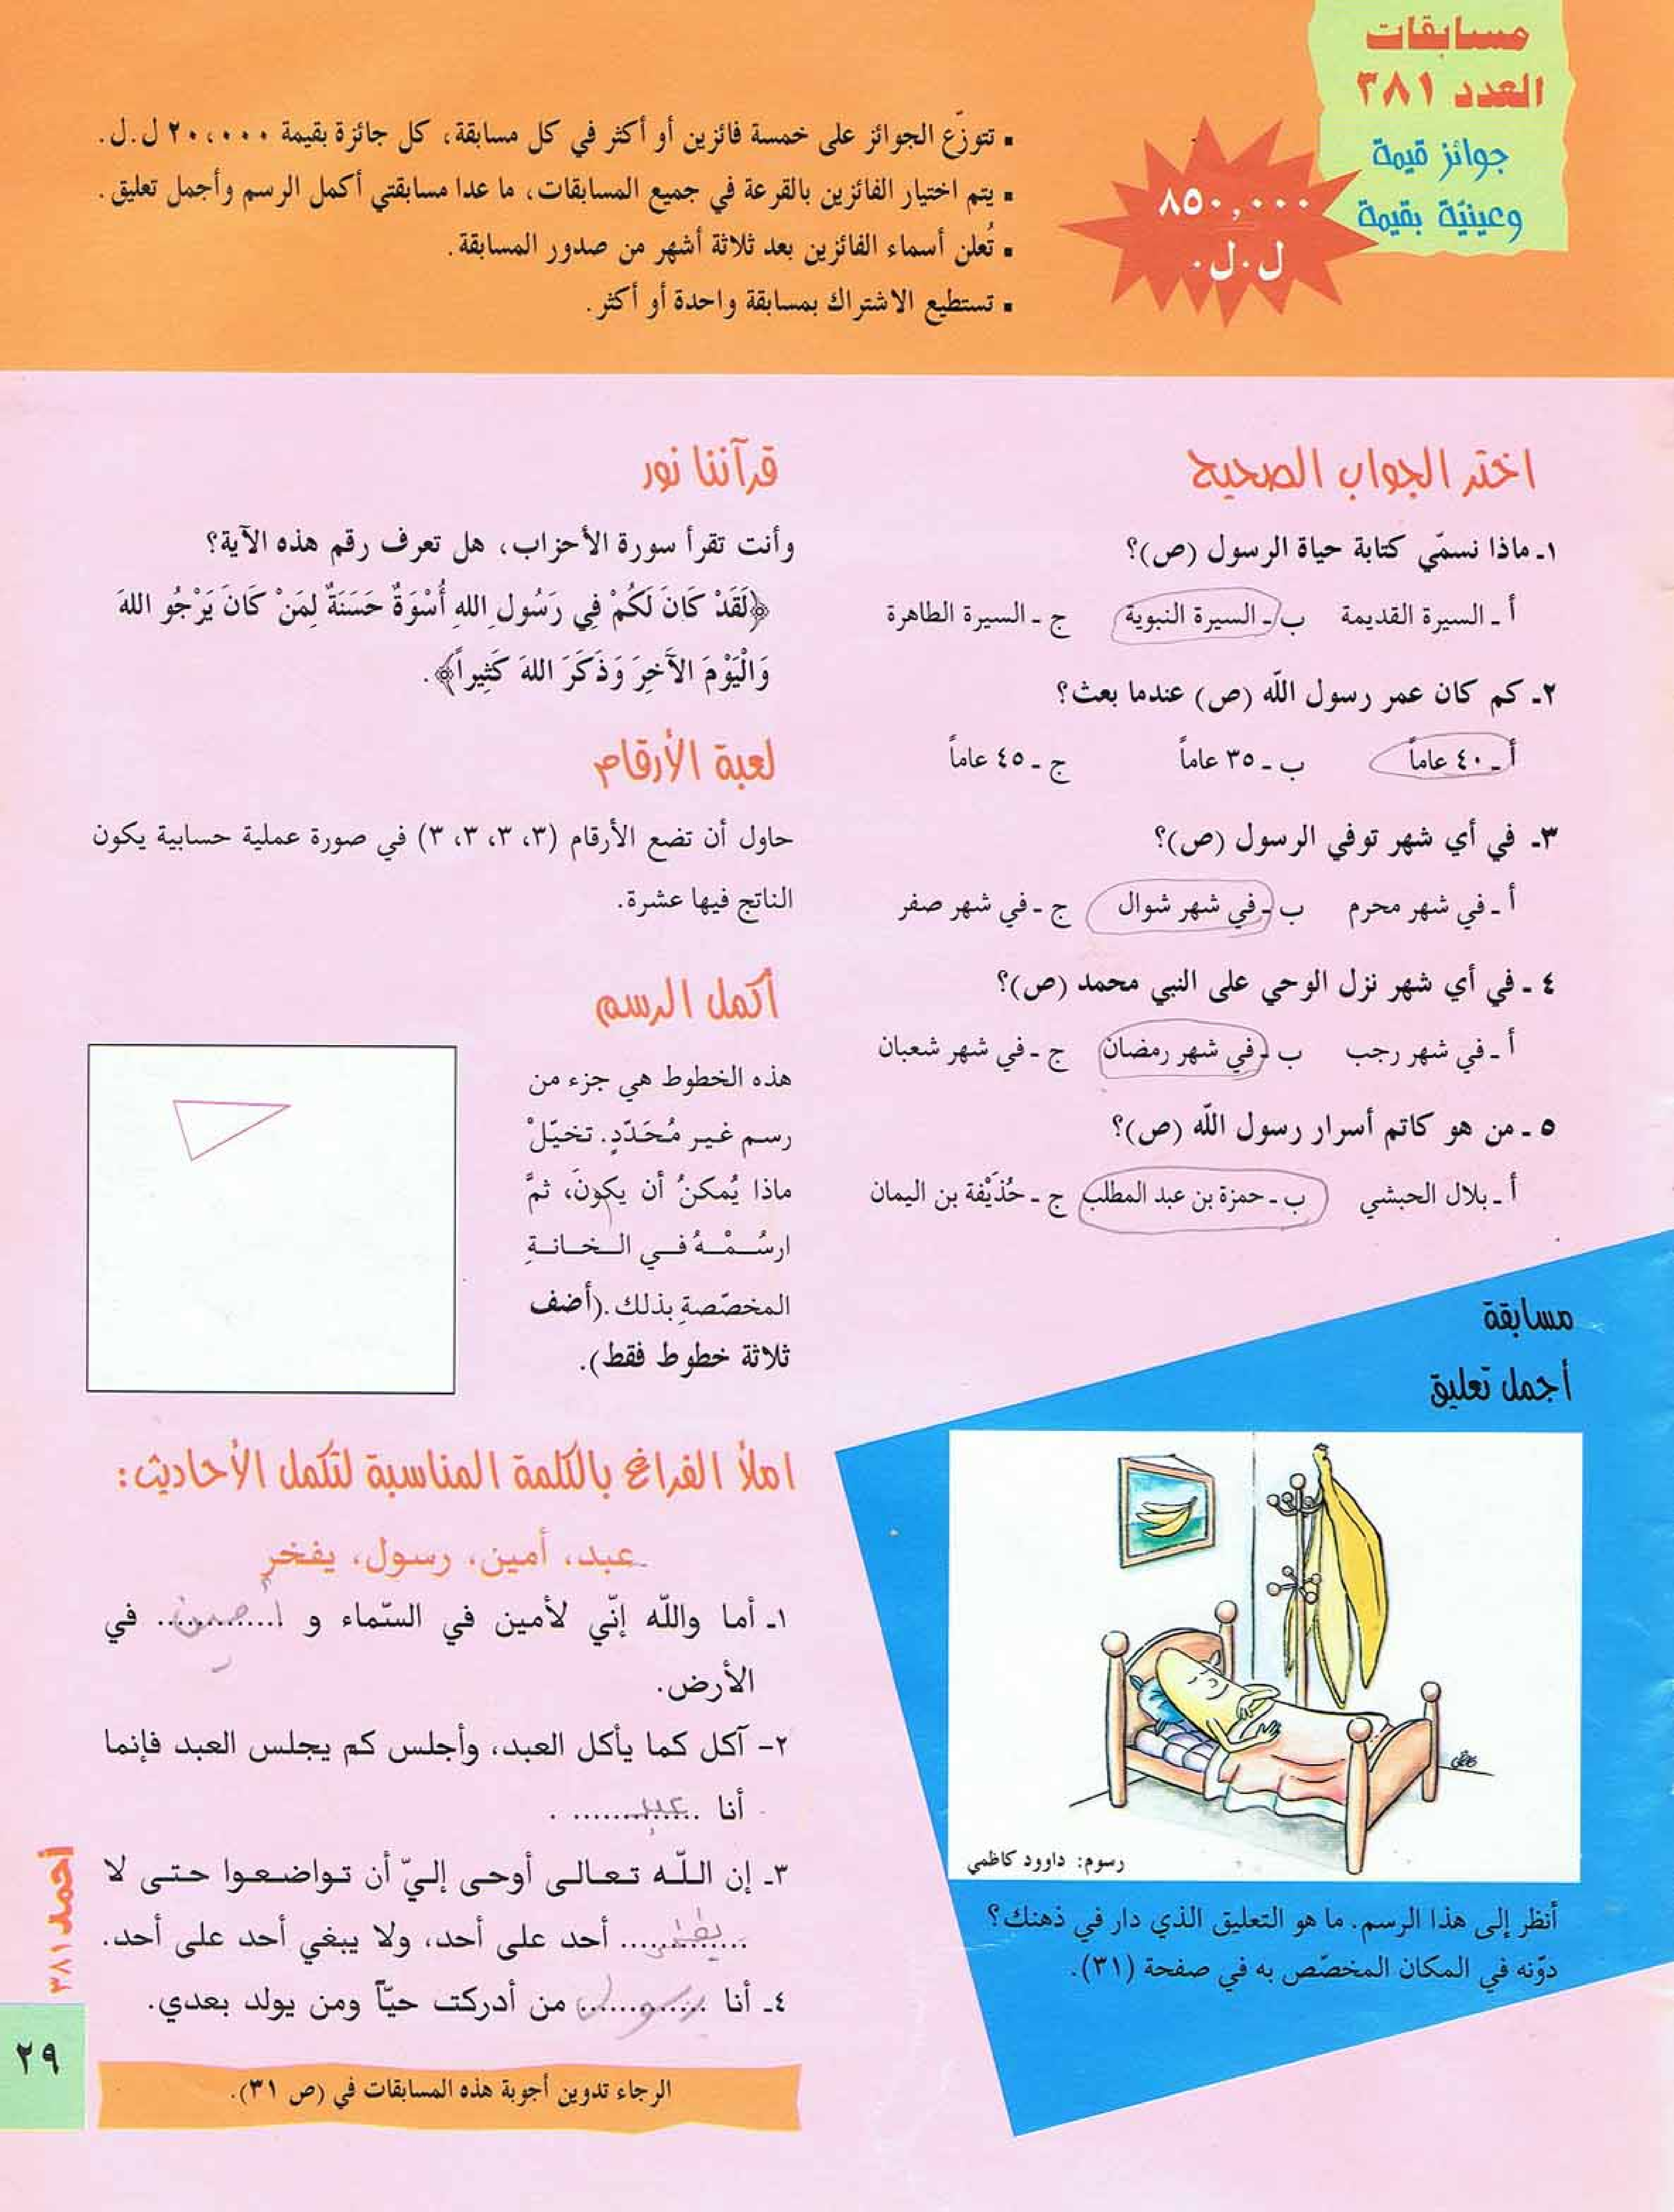 مسابقات
العدد ٣٨١
جوائز قيمة
وعينيّة بقيمة
٨٥٠,٠٠٠
ل.ل.
▪ تتوزّع الجوائز على خمسة فائزين أو أكثر في كل مسابقة، كل جائزة بقيمة ٢٠،٠٠٠ ل.ل.
▪ يتم اختيار الفائزين بالقرعة في جميع المسابقات، ما عدا مسابقتي أكمل الرسم وأجمل تعليق.
▪ تُعلن أسماء الفائزين بعد ثلاثة أشهر من صدور المسابقة.
▪ تستطيع الاشتراك بمسابقة واحدة أو أكثر.
اختر الجواب الصحيح
١ـ ماذا نسمّي كتابة حياة الرسول (ص)؟
أ ـ السيرة القديمة ب ـ السيرة النبوية ج ـ السيرة الطاهرة
٢ـ كم كان عمر رسول اللّه (ص) عندما بعث؟
أ ـ ٤٠ عاماً ب ـ ٣٥ عاماً ج ـ ٤٥ عاماً
٣ـ في أي شهر توفي الرسول (ص)؟
أ ـ في شهر محرم ب ـ في شهر شوال ج ـ في شهر صفر
٤ ـ في أي شهر نزل الوحي على النبي محمد (ص)؟
أ ـ في شهر رجب ب ـ في شهر رمضان ج ـ في شهر شعبان
٥ ـ من هو كاتم أسرار رسول اللّه (ص)؟
أ ـ بلال الحبشي ب ـ حمزة بن عبد المطلب ج ـ حُذَيْفة بن اليمان
مسابقة
أجمل تعليق
رسوم: داوود كاظمي
أنظر إلى هذا الرسم. ما هو التعليق الذي دار في ذهنك؟
دوّنه في المكان المخصّص به في صفحة (٣١).
قرآننا نور
وأنت تقرأ سورة الأحزاب، هل تعرف رقم هذه الآية؟
﴿لَقَدْ كَانَ لَكُمْ فِي رَسُولِ اللهِ أُسْوَةٌ حَسَنَةٌ لِمَنْ كَانَ يَرْجُو اللهَ
وَالْيَوْمَ الآخِرَ وَذَكَرَ اللهَ كَثِيراً﴾.
لعبة الأرقام
حاول أن تضع الأرقام (٣، ٣، ٣، ٣) في صورة عملية حسابية يكون
الناتج فيها عشرة.
أكمل الرسم
هذه الخطوط هي جزء من
رسم غير مُحَدّدٍ. تخيّلْ
ماذا يُمكنُ أن يكونَ، ثمَّ
ارسُمْهُ في الخانةِ
المخصّصةِ بذلك.(أضف
ثلاثة خطوط فقط).
املأ الفراغ بالكلمة المناسبة لتكمل الأحاديث:
عبد، أمين، رسول، يفخر
١ـ أما واللّه إنّي لأمين في السّماء و ............. في
الأرض.
٢- آكل كما يأكل العبد، وأجلس كم يجلس العبد فإنما
أنا عبد .
٣ـ إن اللّه تعالى أوحى إليّ أن تواضعوا حتى لا
............. أحد على أحد، ولا يبغي أحد على أحد.
٤ـ أنا رسول من أدركت حيّاً ومن يولد بعدي.
الرجاء تدوين أجوبة هذه المسابقات في (ص ٣١).
أحمد ٣٨١
٢٩